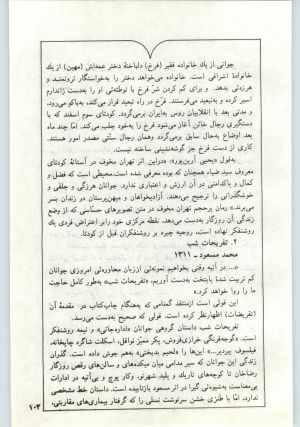 جوانی از یك خانواده فقیر (فرخ) دلباختهٔ دختر عمه‌اش (مهین) از یك
خانوادهٔ اشرافی است. خانواده می‌خواهد دختر را به‌خواستگاری ثروتمند و
هرزه‌ئی بدهد. و برای کم کردن شرّ فرخ با توطئه‌ئی او را به‌دست ژاندارم
اسیر کرده و به‌تبعید می‌فرستند. فرّخ در راه تبعید فرار می‌کند، به‌باکو می‌رود،
و مدتی بعد با انقلابیون روس به‌ایران برمی‌گردد. کودتای سوم اسفند که با
دستگیری رجال خائن آغاز می‌شود فرخ را به‌خود جلب می‌کند. امّا چند ماه
بعد اوضاع به‌حال سابق برمی‌گردد وهمان رجال سنّتی مصدر امور هستند.
کاری از دست فرخ جز گوشه‌نشینی ساخته نیست.
به‌قول «یحیی آرین‌پور»: «دراین اثر تهران مخوف در آستانهٔ کودتای
معروف سید ضیاء همچنان که بوده معرفی شده است.محیطی است که فضل و
کمال و پاکدامنی در آن ارزش و اعتباری ندارد. جوانان هرزگی و جلفی و
خوشگذرانی را ترجیح می‌دهند. آزادیخواهان و میهن‌پرستان در زندان بسر
می‌برند.» رمان پرحجم تهران مخوف در متن تصویرهای حسّاسی که از وضع
زندگی آن روزگار به‌دست می‌دهد، نقطه مرکزی خود رابر اعتراض فردی یك
روشنفکر نهاده است. روحیه چیره بر روشنفکران قبل از کودتا.
۲. تفریحات شب
محمد مسعود ـ ۱۳۱۱
«... در آتیه وقتی بخواهیم نمونه‌ئی اززبان محاوره‌ئی امروزی جوانان
کم تربیت شدهٔ پایتخت به‌دست آوریم، «تفریحات شب» به‌طور کامل حاجت
ما را روا خواهد کرد».
این قولی است ازمنتقد گمنامی که به‌هنگام چاپ‌کتاب در مقدمهٔ آن
(تفریحات) اظهارنظر کرده است. قولی که صحیح به‌دست می‌رسد.
تفریحات شب داستان گروهی جوانان «اداره‌جاتی» و نیمه روشنفکر
است. «کوچه‌فرنگی خرازی‌فروش، پکر ممیّز نوافل، اسکلت شاگرد چاپخانه،
فیلسوف پیردبیر...» این‌ها «لحیم بدبختی» به‌هم جوش داده است. گذران
زندگی این جوانان که سیر مدامی میان میکده‌های و سالن‌های رقص روزگار
رضاخان تا کوچه‌های تاریك و پلید شهرنو، وکار پوچ و بی‌آتیه در ادارات
بی‌معناست به‌شیوه‌ئی گیرا در اثر مسعود بازتابیده است. داستان خط مشخصی
ندارد. امّا با طنزی خشن سرنوشت نسلی را که گرفتار بیماری‌های مقاربتی،
۱۰۳